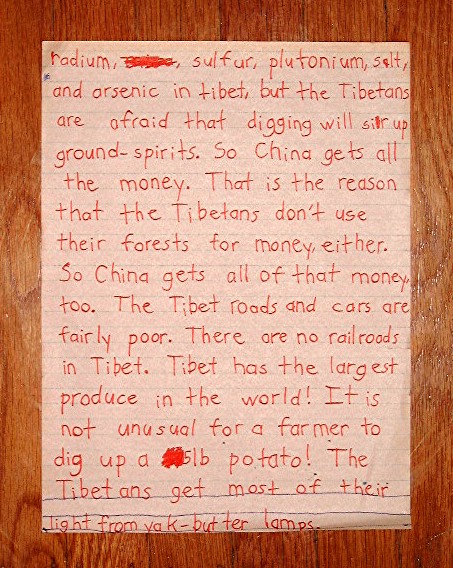 radium, , sulfur, plutonium, salt,
and arsenic in tibet, but the Tibetans
are afraid that digging will stir up
ground-spirits. So China gets all
the money. That is the reason
that the Tibetans don't use
their forests for money either.
So China gets all of that money,
too. The Tibet roads and cars are
fairly poor. There are no railroads
in Tibet. Tibet has the largest
produce in the world! It is
not unusual for a farmer to
dig up a 5lb potato! The
Tibetans get most of their
light from yak-butter lamps.